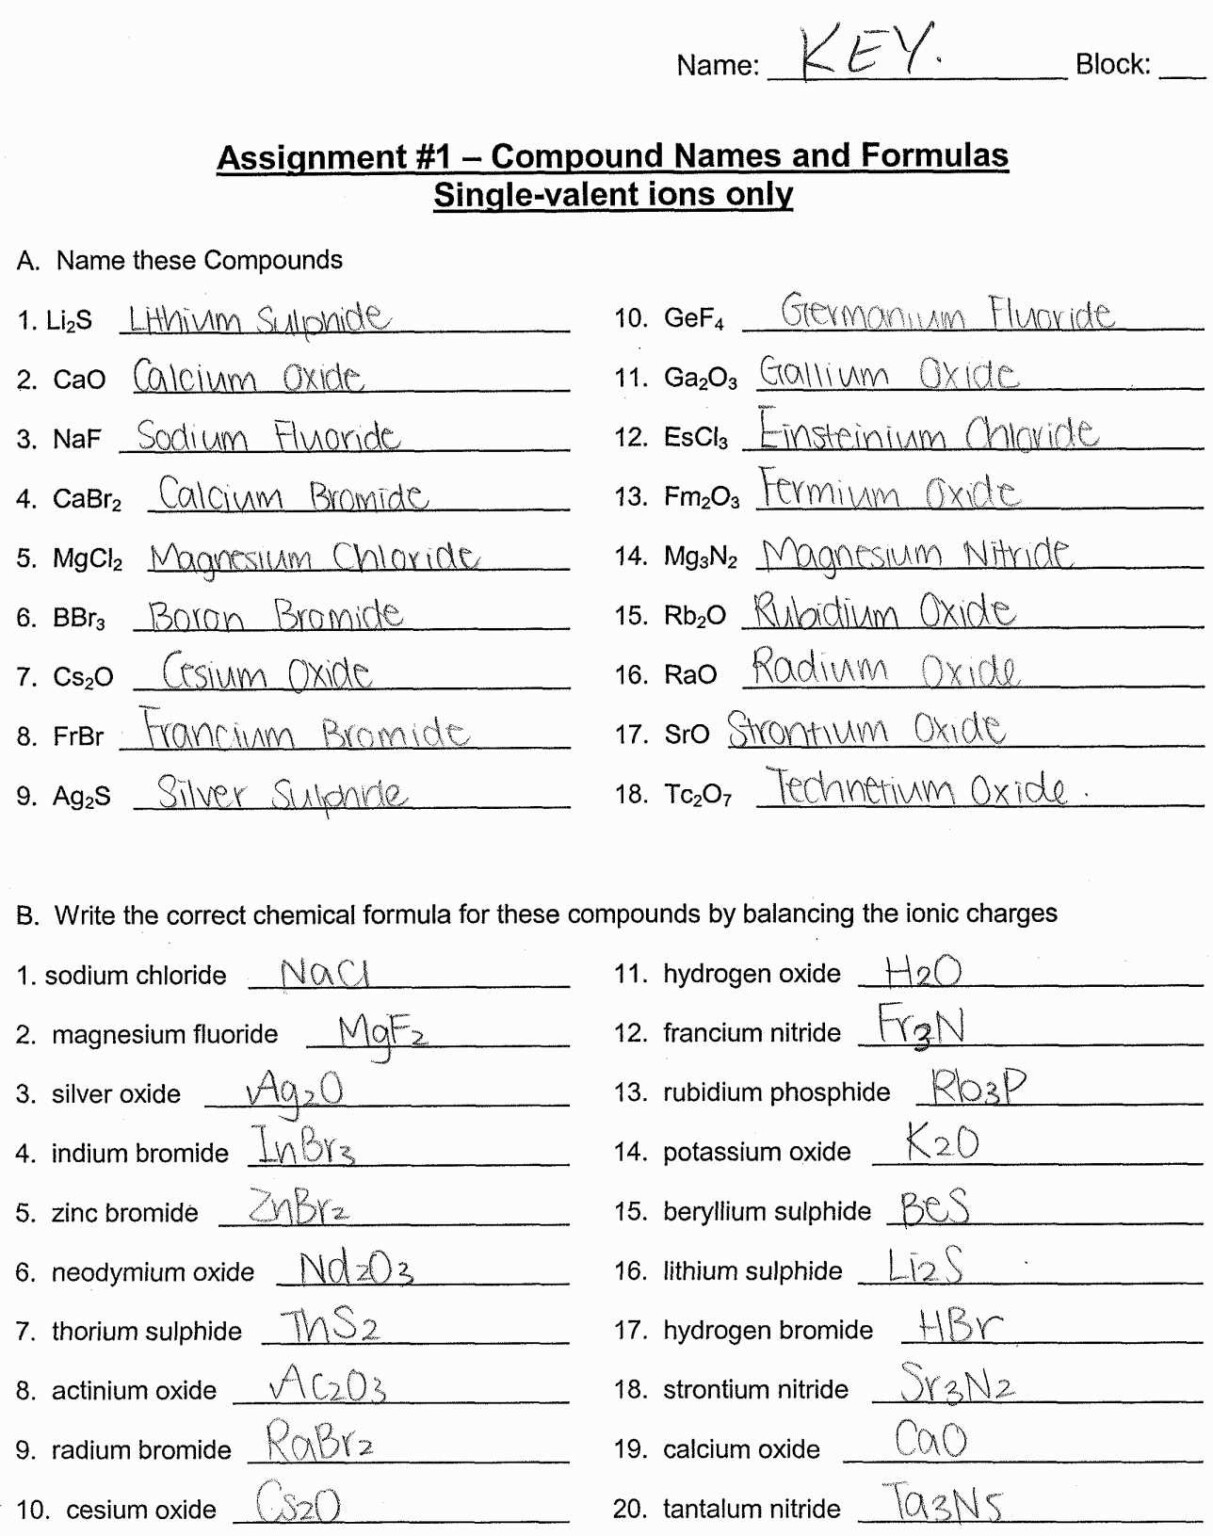 Name: KEY. Block:
Assignment #1 – Compound Names and Formulas
Single-valent ions only
A. Name these Compounds
1. Li₂S Lithium Sulphide
2. CaO Calcium Oxide
3. NaF Sodium Fluoride
4. CaBr₂ Calcium Bromide
5. MgCl₂ Magnesium Chloride
6. BBr₃ Boron Bromide
7. Cs₂O Cesium Oxide
8. FrBr Francium Bromide
9. Ag₂S Silver Sulphide
10. GeF₄ Germanium Fluoride
11. Ga₂O₃ Gallium Oxide
12. EsCl₃ Einsteinium Chloride
13. Fm₂O₃ Fermium Oxide
14. Mg₃N₂ Magnesium Nitride
15. Rb₂O Rubidium Oxide
16. RaO Radium Oxide
17. SrO Strontium Oxide
18. Tc₂O₇ Technetium Oxide.
B. Write the correct chemical formula for these compounds by balancing the ionic charges
1. sodium chloride NaCl
2. magnesium fluoride MgF₂
3. silver oxide Ag₂O
4. indium bromide InBr₃
5. zinc bromide ZnBr₂
6. neodymium oxide Nd₂O₃
7. thorium sulphide ThS₂
8. actinium oxide Ac₂O₃
9. radium bromide RaBr₂
10. cesium oxide Cs₂O
11. hydrogen oxide H₂O
12. francium nitride Fr₃N
13. rubidium phosphide Rb₃P
14. potassium oxide K₂O
15. beryllium sulphide BeS
16. lithium sulphide Li₂S
17. hydrogen bromide HBr
18. strontium nitride Sr₃N₂
19. calcium oxide CaO
20. tantalum nitride Ta₃N₅